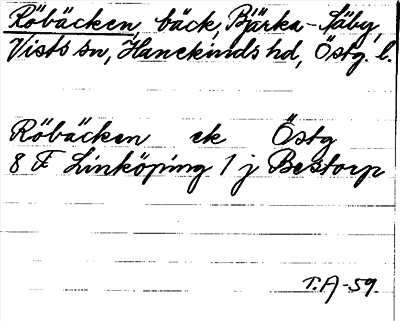 Röbäcken, bäck, Bjärka-Säby,
Vists sn, Hanekinds hd, Östg. l.
Röbäcken ek Östg
8 F Linköping 1 j Bestorp
T.A-59.